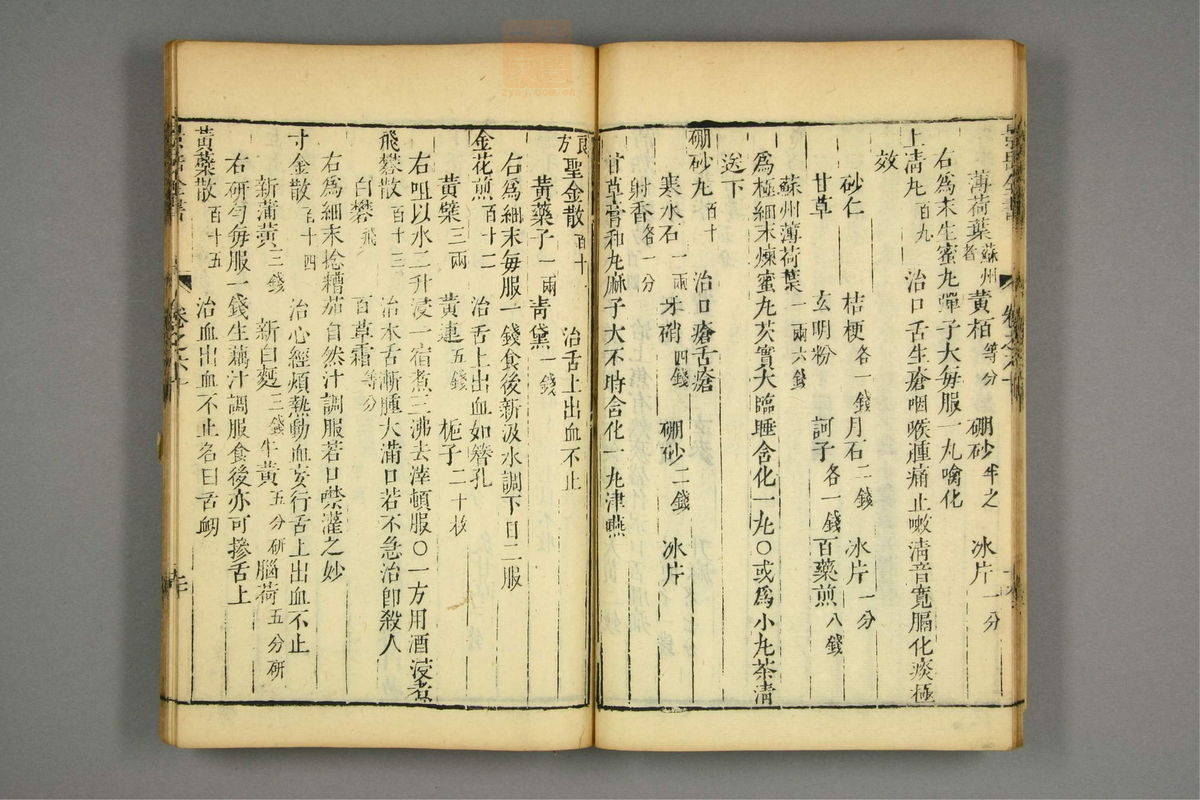 薄荷葉蘇州者 黃栢等分 硼砂半之 冰片一分
右為末生蜜丸彈子大每服一丸噙化
上清丸百九 治口舌生瘡咽喉腫痛止嗽清音寬膈化痰極
效
砂仁 桔梗各一錢 月石二錢 冰片一分
甘草 玄明粉 訶子各一錢 百藥煎八錢
蘇州薄荷葉一兩六錢
為極細末煉蜜丸芡實大臨睡含化一丸○或為小丸茶清
送下
硼砂丸百十 治口瘡舌瘡
寒水石一兩 牙硝四錢 硼砂二錢 冰片
射香各一分
甘草膏和丸麻子大不時含化一丸津嚥
良方聖金散百十 治舌上出血不止
黃藥子一兩 青黛一錢
右為細末每服一錢食後新汲水調下日二服
金花煎百十二 治舌上出血如簪孔
黃檗三兩 黃連五錢 梔子二十枚
右㕮以水二升浸一宿煮三沸去滓頓服○一方用酒浸煮
飛礬散百十三 治木舌漸腫大滿口若不急治卽殺人
白礬飛 百草霜等分
右為細末捻糟茄自然汁調服若口噤灌之妙
寸金散百十四 治心經煩熱動血妄行舌上出血不止
新蒲黃三錢 新白麪三錢 牛黃五分研 腦荷五分研
右研勻每服一錢生藕汁調服食後亦可摻舌上
黃藥散百十五 治血出血不止名曰舌衂
卷之六十